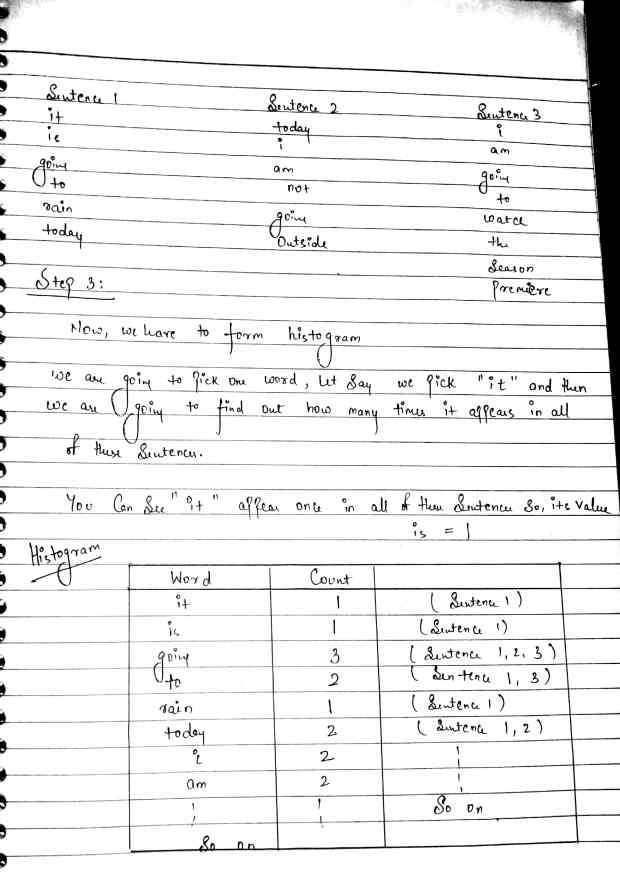 Sentence 1 Sentence 2 Sentence 3
it today i
is i am
going am going
to not to
rain going watch
today Outside the
Season
Premiere
Step 3:
Now, we have to form histogram
we are going to Pick one word, let Say we Pick "it" and then
we are going to find out how many times it appears in all
of these Sentences.
You Can See "it" appear once in all of these Sentences So, its value
is = 1
Histogram
Word Count
it 1 (Sentence 1)
is 1 (Sentence 1)
going 3 (Sentence 1,2,3)
to 2 (Sentence 1,3)
rain 1 (Sentence 1)
today 2 (Sentence 1,2)
i 2
am 2
So on
So on